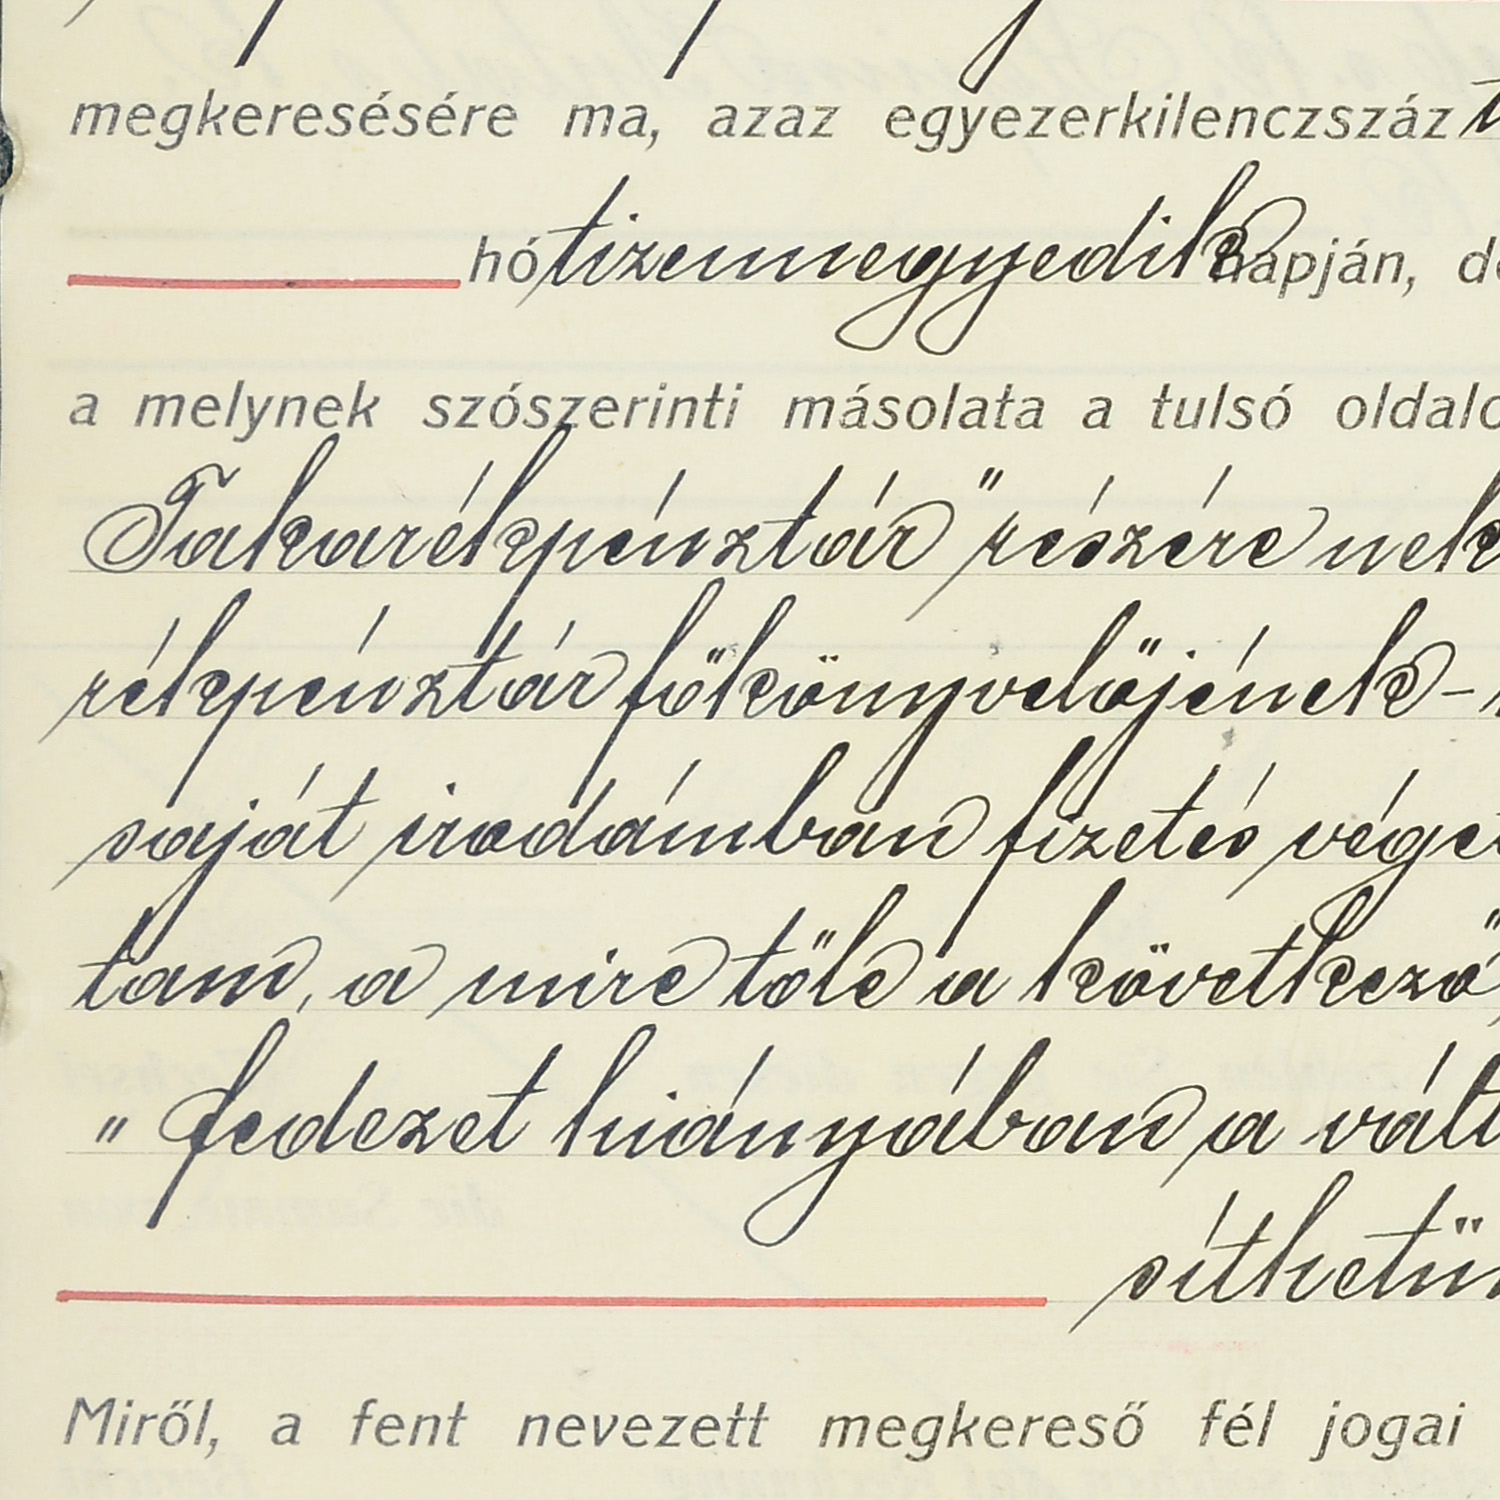 megkeresésére ma, azaz egyezerkilenczszáz
hó tizennegyedik napján, de
a melynek szószerinti másolata a tulsó oldalo
Takarékpénztár" részére nek
rékpénztár főkönyvelőjének -
saját irodámban fizetés véget
tam, a mire tőle a következő
" fedezet hiányában a vált
síthetün
Miről, a fent nevezett megkereső fél jogai